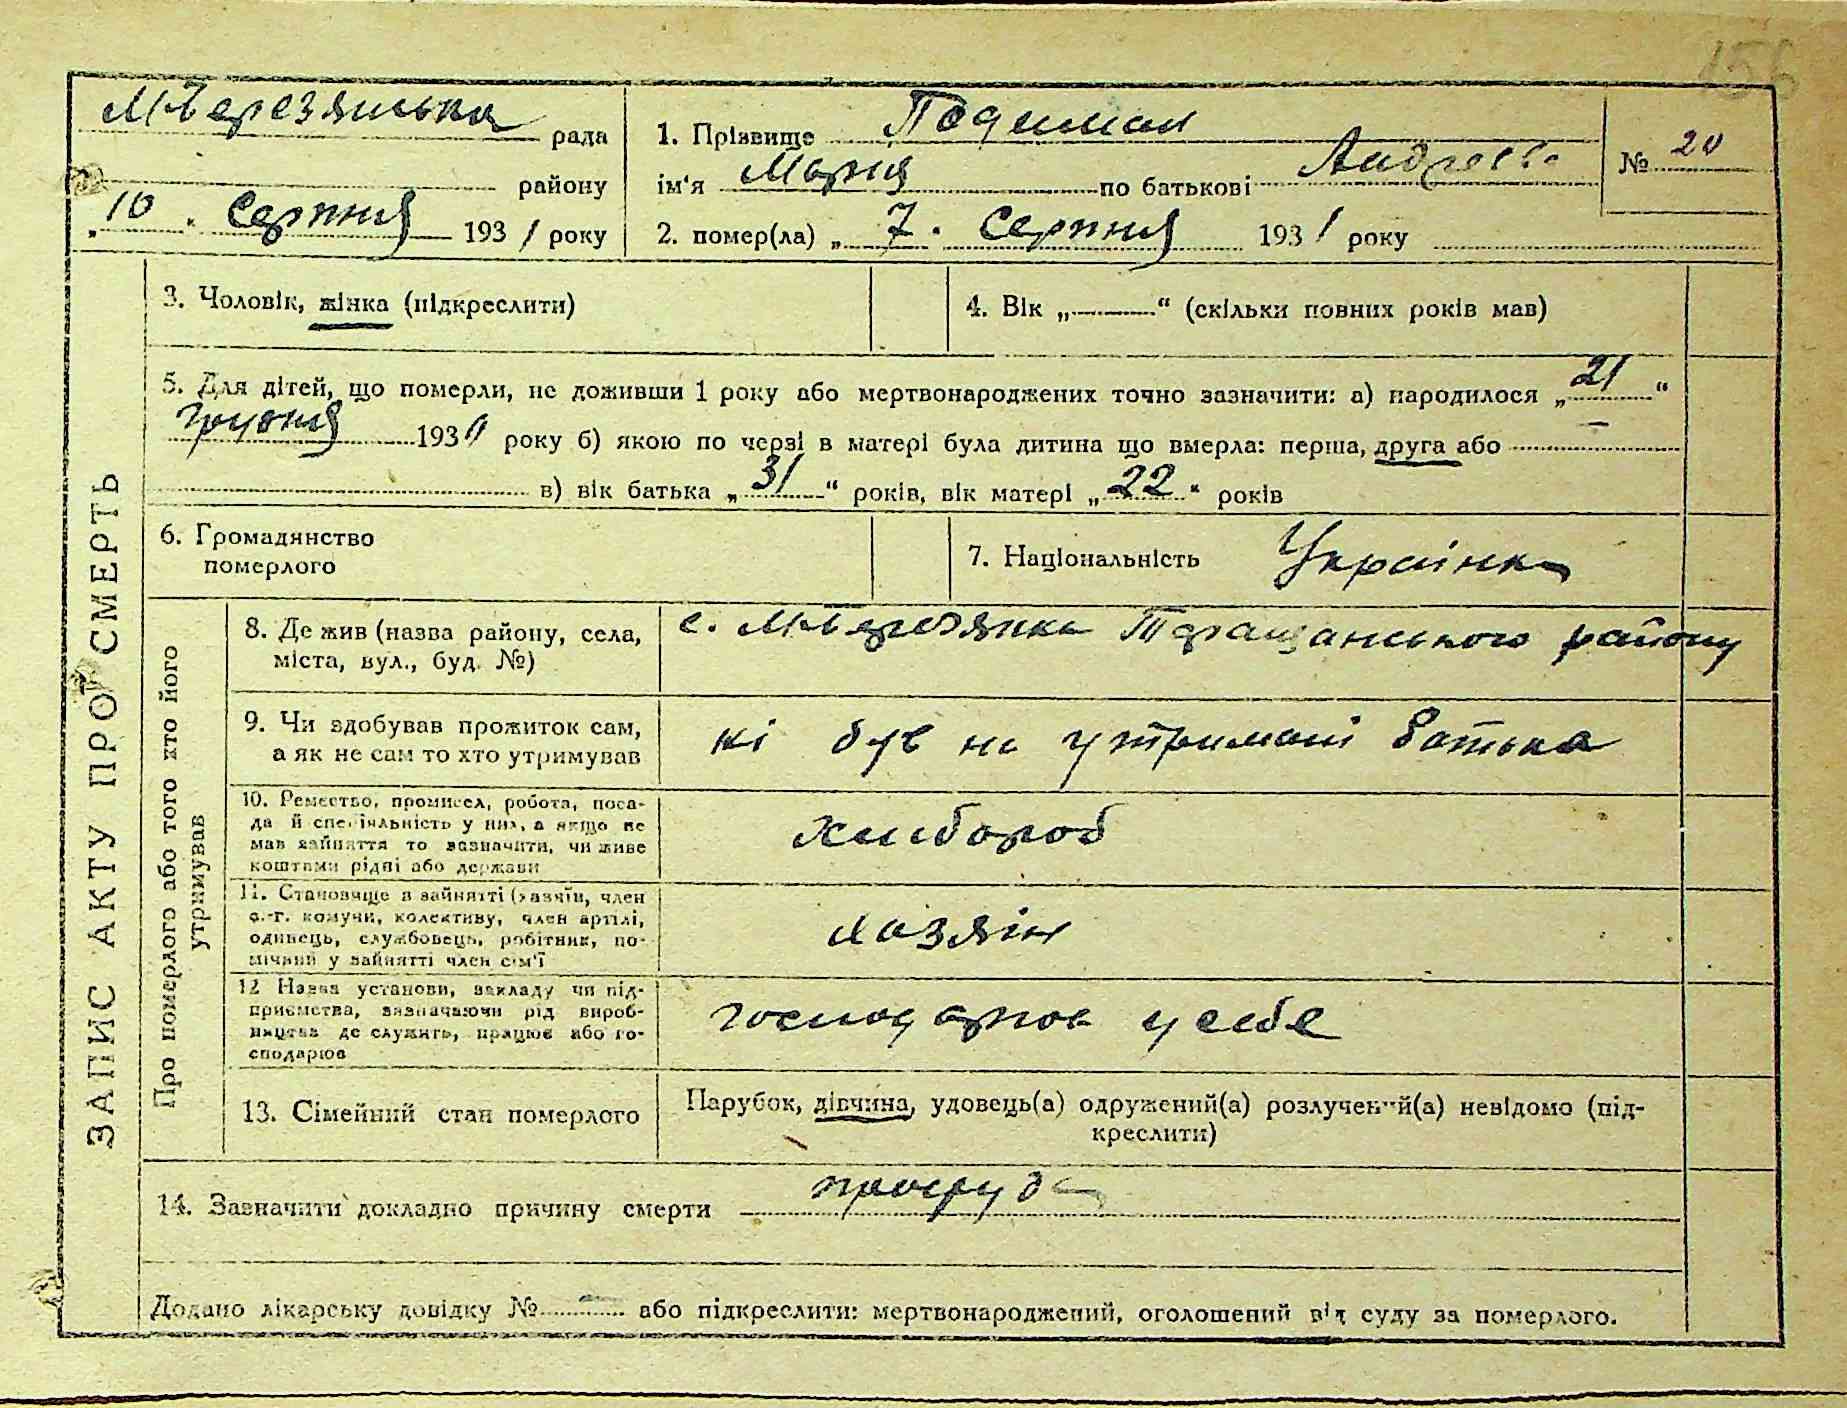 156
М-Березянська рада
району
„10" Серпня 1931 року
1. Прізвище Подиман
ім'я Марія по батькові Андреева
№ 20
2. помер(ла) „7" Серпня 1931 року
ЗАПИС АКТУ ПРО СМЕРТЬ
3. Чоловік, жінка (підкреслити)
4. Вік „———“ (скільки повних років мав)
5. Для дітей, що померли, не доживши 1 року або мертвонароджених точно зазначити: а) народилося „21“
грудня 193 року б) якою по черзі в матері була дитина що вмерла: перша, друга або
в) вік батька „31“ років, вік матері „22“ років
6. Громадянство
померлого
7. Національність Українка
Про померлого або того хто його
утримував
8. Де жив (назва району, села,
міста, вул., буд. №)
с. М-Березянка Таращанського району
9. Чи здобував прожиток сам,
а як не сам то хто утримував
ні був на утримані батька
10. Ремество, промисел, робота, поса-
да й спеціяльність у них, а якщо не
мав зайняття то зазначити, чи живе
коштами рідні або держави
хлібороб
11. Становище в зайнятті (хазяїн, член
с.-г. комуни, колективу, член артілі,
одинець, службовець, робітник, по-
мічний у зайнятті член сім'ї
хазяін
12 Назва установи, закладу чи під-
приємства, зазначаючи рід вироб-
ництва де служить, працює або го-
сподарює
господарюв у себе
13. Сімейний стан померлого
Парубок, дівчина, удовець(а) одружений(а) розлучений(а) невідомо (під-
креслити)
14. Зазначити докладно причину смерти простуда
Додано лікарську довідку № — або підкреслити: мертвонароджений, оголошений від суду за померлого.